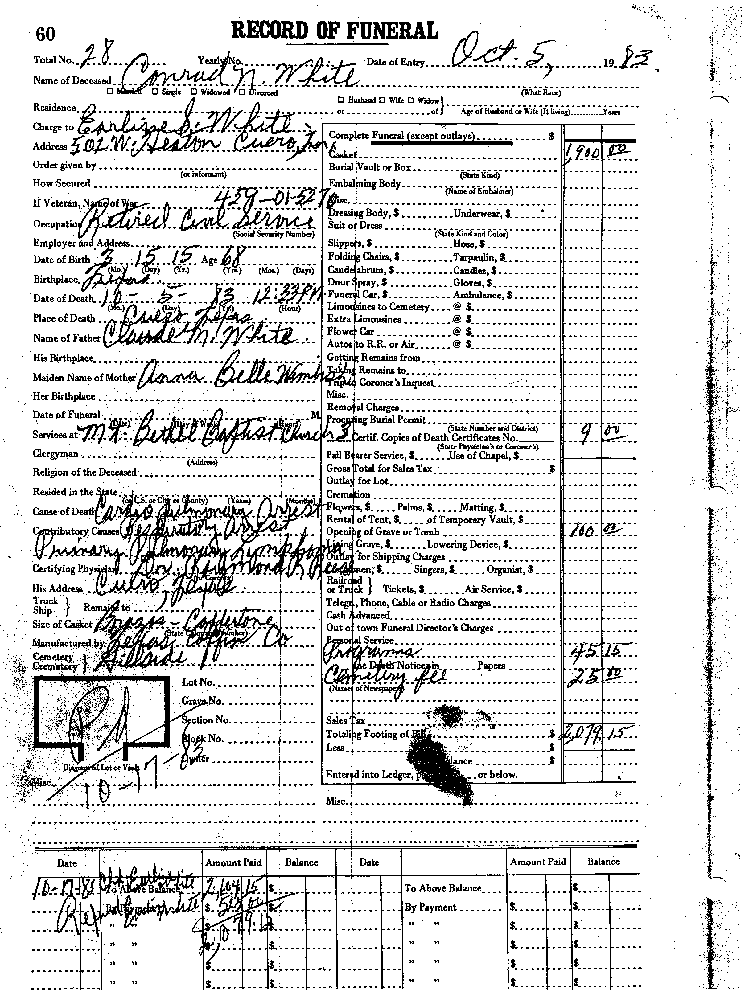 60
RECORD OF FUNERAL
Total No. 28 Yearly No. Date of Entry Oct. 5, 1983
Name of Deceased Conrad N. White
Married Single Widowed Divorced (What Race)
Residence Husband Wife Widow
or of Age of Husband or Wife (If living) Years
Charge to Earline S. White
Address 502 W. Heaton Cuero,
Order given by
(or informant)
How Secured
If Veteran, Name of War 459-01-5276
Occupation Retired Civil Service
(Social Security Number)
Employer and Address
Date of Birth 3 15 15 Age 68
(Mo.) (Day) (Yr.) (Yrs.) (Mos.) (Days)
Birthplace Texas
Date of Death 10 - 5 - 83 12:33 PM
(Hour)
Place of Death Cuero Texas
Name of Father Claude M. White
His Birthplace
Maiden Name of Mother Anna Belle
Her Birthplace
Date of Funeral M.
Services at Mt. Bethel Baptist Church
Clergyman
(Address)
Religion of the Deceased
Resided in the State
(or U.S. or City or County) (Years) (Months)
Cause of Death Cardio Pulmonary Arrest
Contributory Causes Respiratory Arrest
Primary Pulmonary Lymphoma
Certifying Physician Dr. Raymond R. Reese
His Address Cuero, Texas
Truck Ship Remains to
Size of Casket Coppertone
Manufactured by Texas Coffin Co
Cemetery Crematory Hillside
Lot No.
Grave No.
Section No.
Block No.
Owner
Pd
10-17-83
Diagram of Lot or Vault
Misc.
Complete Funeral (except outlays) $
Casket 1,900 00
Burial Vault or Box
(State Kind)
Embalming Body
(Name of Embalmer)
Misc.
Dressing Body, $ Underwear, $
Suit or Dress
(State Kind and Color)
Slippers, $ Hose, $
Folding Chairs, $ Tarpaulin, $
Candelabrum, $ Candles, $
Door Spray, $ Gloves, $
Funeral Car, $ Ambulance, $
Limousines to Cemetery @ $
Extra Limousines @ $
Flower Car @ $
Autos to R.R. or Air @ $
Getting Remains from
Taking Remains to
Trip to Coroner's Inquest
Misc.
Removal Charges
Procuring Burial Permit
(State Number and District)
3 Certif. Copies of Death Certificates No. 9 00
(State Physician's or Coroner's)
Pall Bearer Service, $ Use of Chapel, $
Gross Total for Sales Tax $
Outlay for Lot
Cremation
Flowers, $ Palms, $ Matting, $
Rental of Tent, $ of Temporary Vault, $
Opening of Grave or Tomb 100 00
Lining Grave, $ Lowering Device, $
Outlay for Shipping Charges
Clergymen, $ Singers, $ Organist, $
Railroad or Truck Tickets, $ Air Service, $
Telegr., Phone, Cable or Radio Charges
Cash Advanced
Out of town Funeral Director's Charges
Personal Service
Programs 45 15
Death Notices in Papers
Cemetery fee 25 00
(Names of Newspapers)
Sales Tax
Totaling Footing of Bill $ 2,079.15
Less
Balance $
Entered into Ledger, or below.
Misc.
Date Amount Paid Balance Date Amount Paid Balance
10-17-83 To Above Balance 2,104.15 $ To Above Balance $
By Payment $
" " $
" " $
" " $
" " $